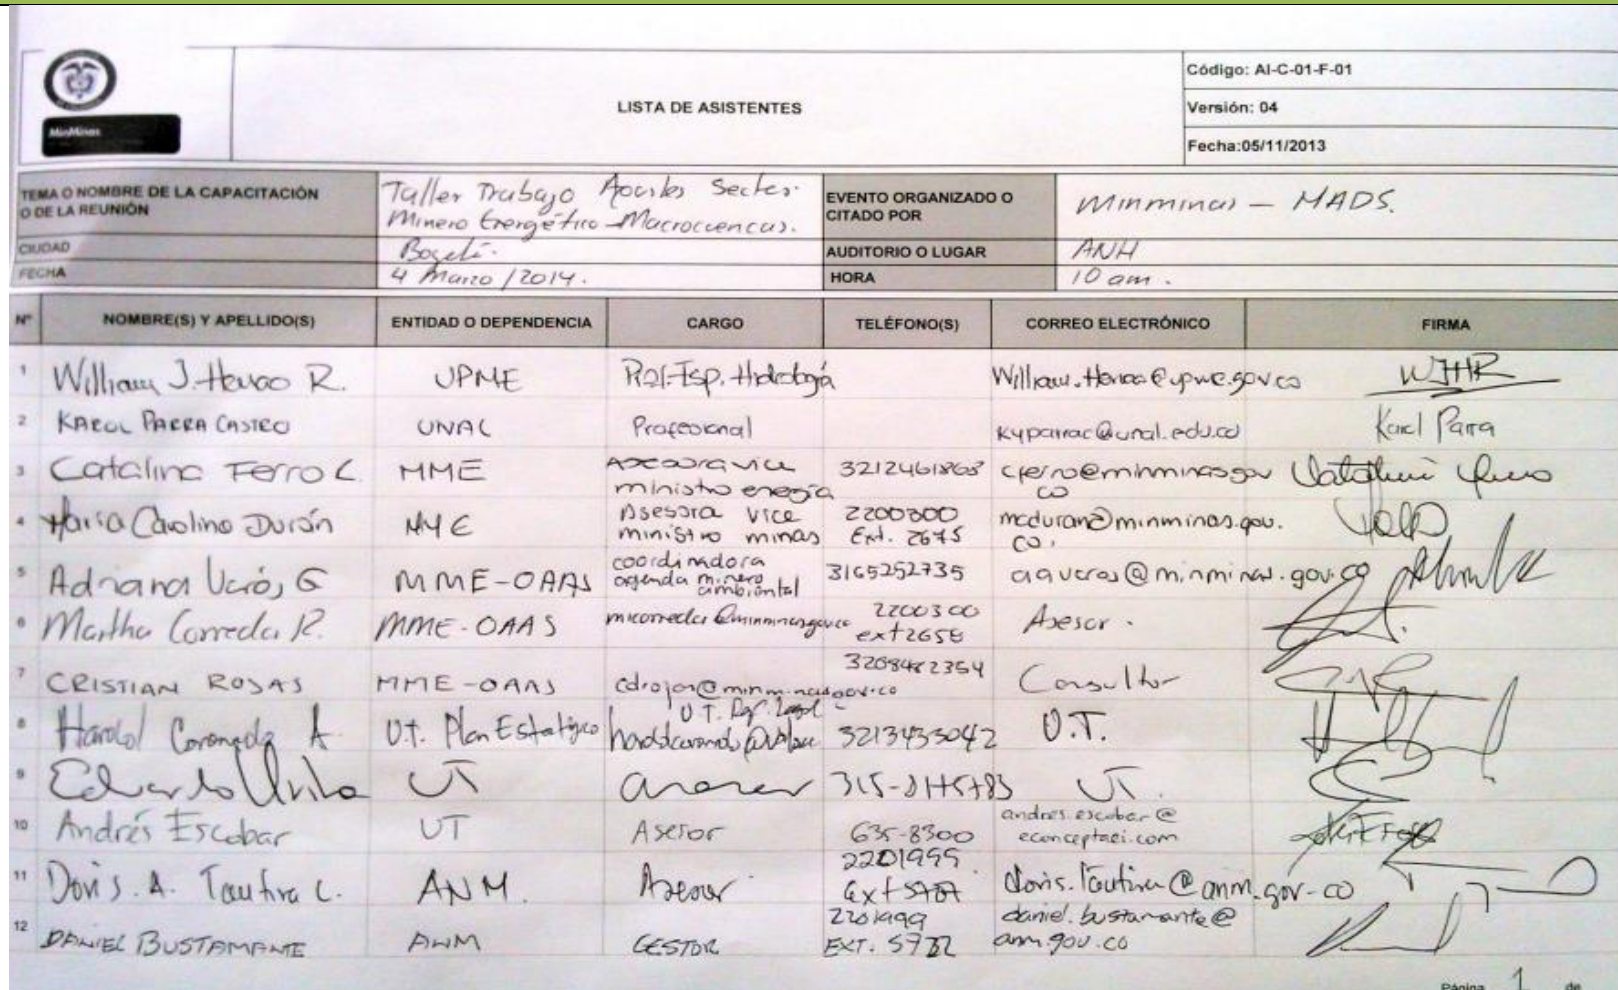 MinMinas
LISTA DE ASISTENTES
Código: AI-C-01-F-01
Versión: 04
Fecha:05/11/2013
TEMA O NOMBRE DE LA CAPACITACIÓN
O DE LA REUNIÓN
Taller Trabajo Sector
Minero Energético - Macrocuencas.
EVENTO ORGANIZADO O
CITADO POR
Minminas - MADS.
CIUDAD
Bogotá.
AUDITORIO O LUGAR
ANH
FECHA
4 Marzo /2014.
HORA
10 am.
Nº NOMBRE(S) Y APELLIDO(S) ENTIDAD O DEPENDENCIA CARGO TELÉFONO(S) CORREO ELECTRÓNICO FIRMA
1 William J. Henao R. UPME Prof. Esp. Hidrología William.Henao@upme.gov.co WJHR
2 KAROL PARRA CASTRO UNAL Profesional kyparrac@unal.edu.co Karol Parra
3 Catalina Ferro C. MME Asesora vice
ministro energía 3212461868 cferro@minminas.gov
co
4 María Carolina Durán MME Asesora vice
ministro minas 2200300
Ext. 2675 mcduran@minminas.gov.
co.
5 Adriana G MME-OAAS coordinadora
agenda minero
ambiental 3165252735 aaveros@minminas.gov.co
6 Martha Correda R. MME-OAAS mcorreda@minminas.gov.co 2200300
ext 2658 Asesor.
7 CRISTIAN ROJAS MME-OAAS cdrojas@minminas.gov.co Consultor
8 Harold Coronado A U.T. Plan Estratégico U.T. Rep. Legal
3213433042 U.T.
9 Eduardo Uribe UT UT.
10 Andrés Escobar UT Asesor 635-8300 andres.escobar@
econceptaei.com
11 Doris. A. Tautiva C. ANM. Asesor 2201999
Ext doris.tautiva@anm.gov.co
12 DANIEL BUSTAMANTE ANM GESTOR 2201999
EXT. daniel.bustamante@
anm.gov.co
Página 1 de